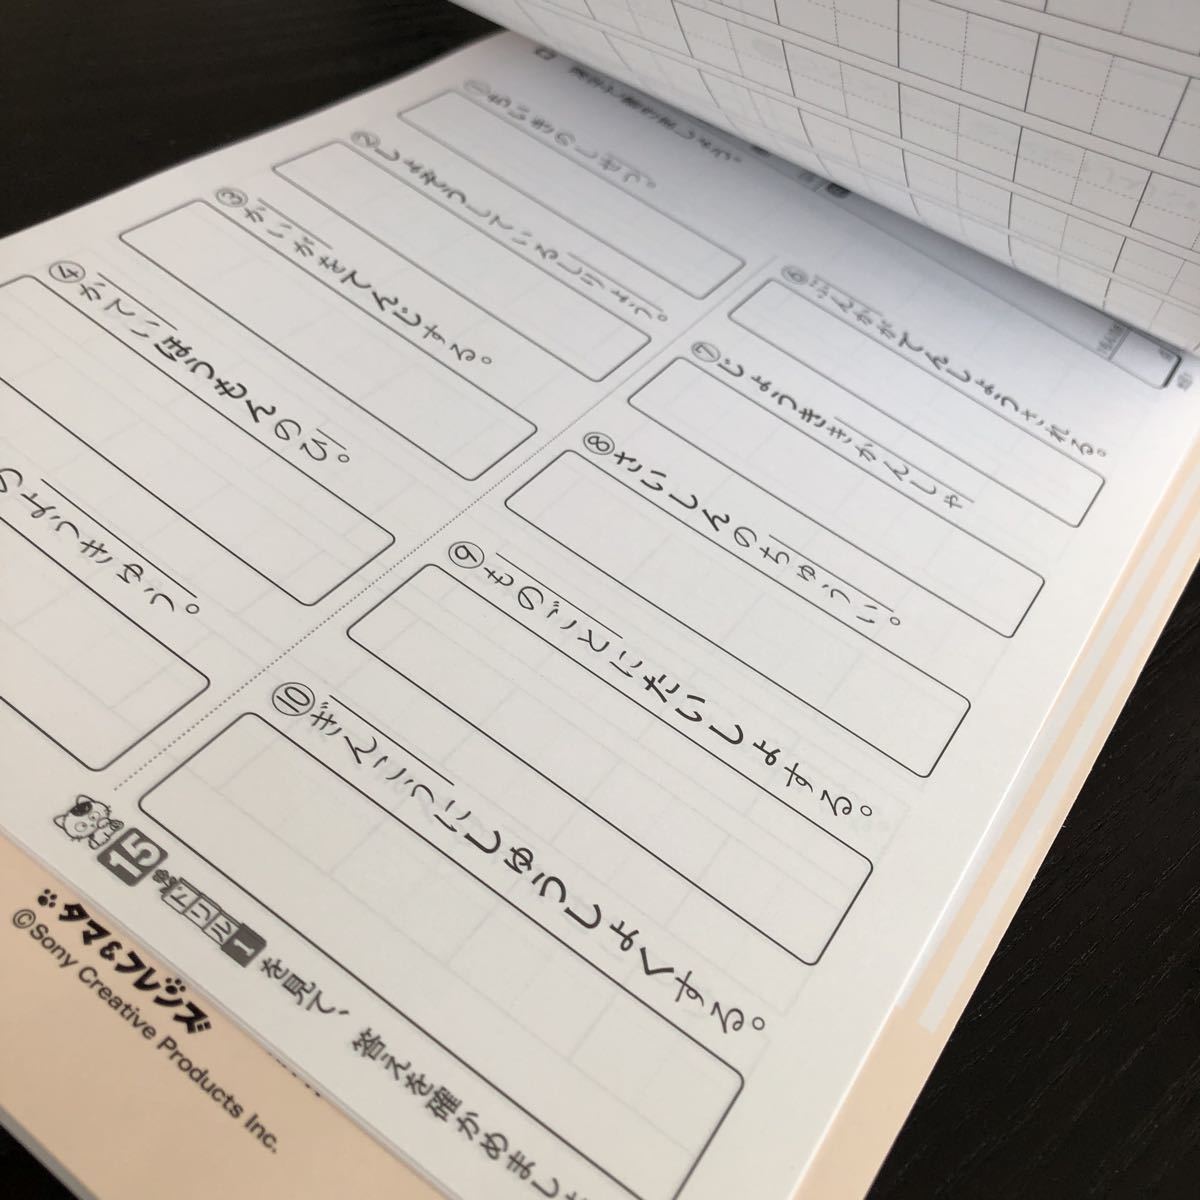 漢字で書きましょう。
①ちいきのしせつ。
②しょぞうしているしりょう。
③かいがをてんじする。
④かていほうもんのひ。
のようきゅう。
⑥ぶんかがてんしょうされる。
⑦じょうききかんしゃ
⑧さいしんのちゅうい。
⑨ものごとにたいしょする。
⑩ぎんこうにしゅうしょくする。
15のドリル1を見て、答えを確かめましょ
タマ&フレンズ
©Sony Creative Products Inc.